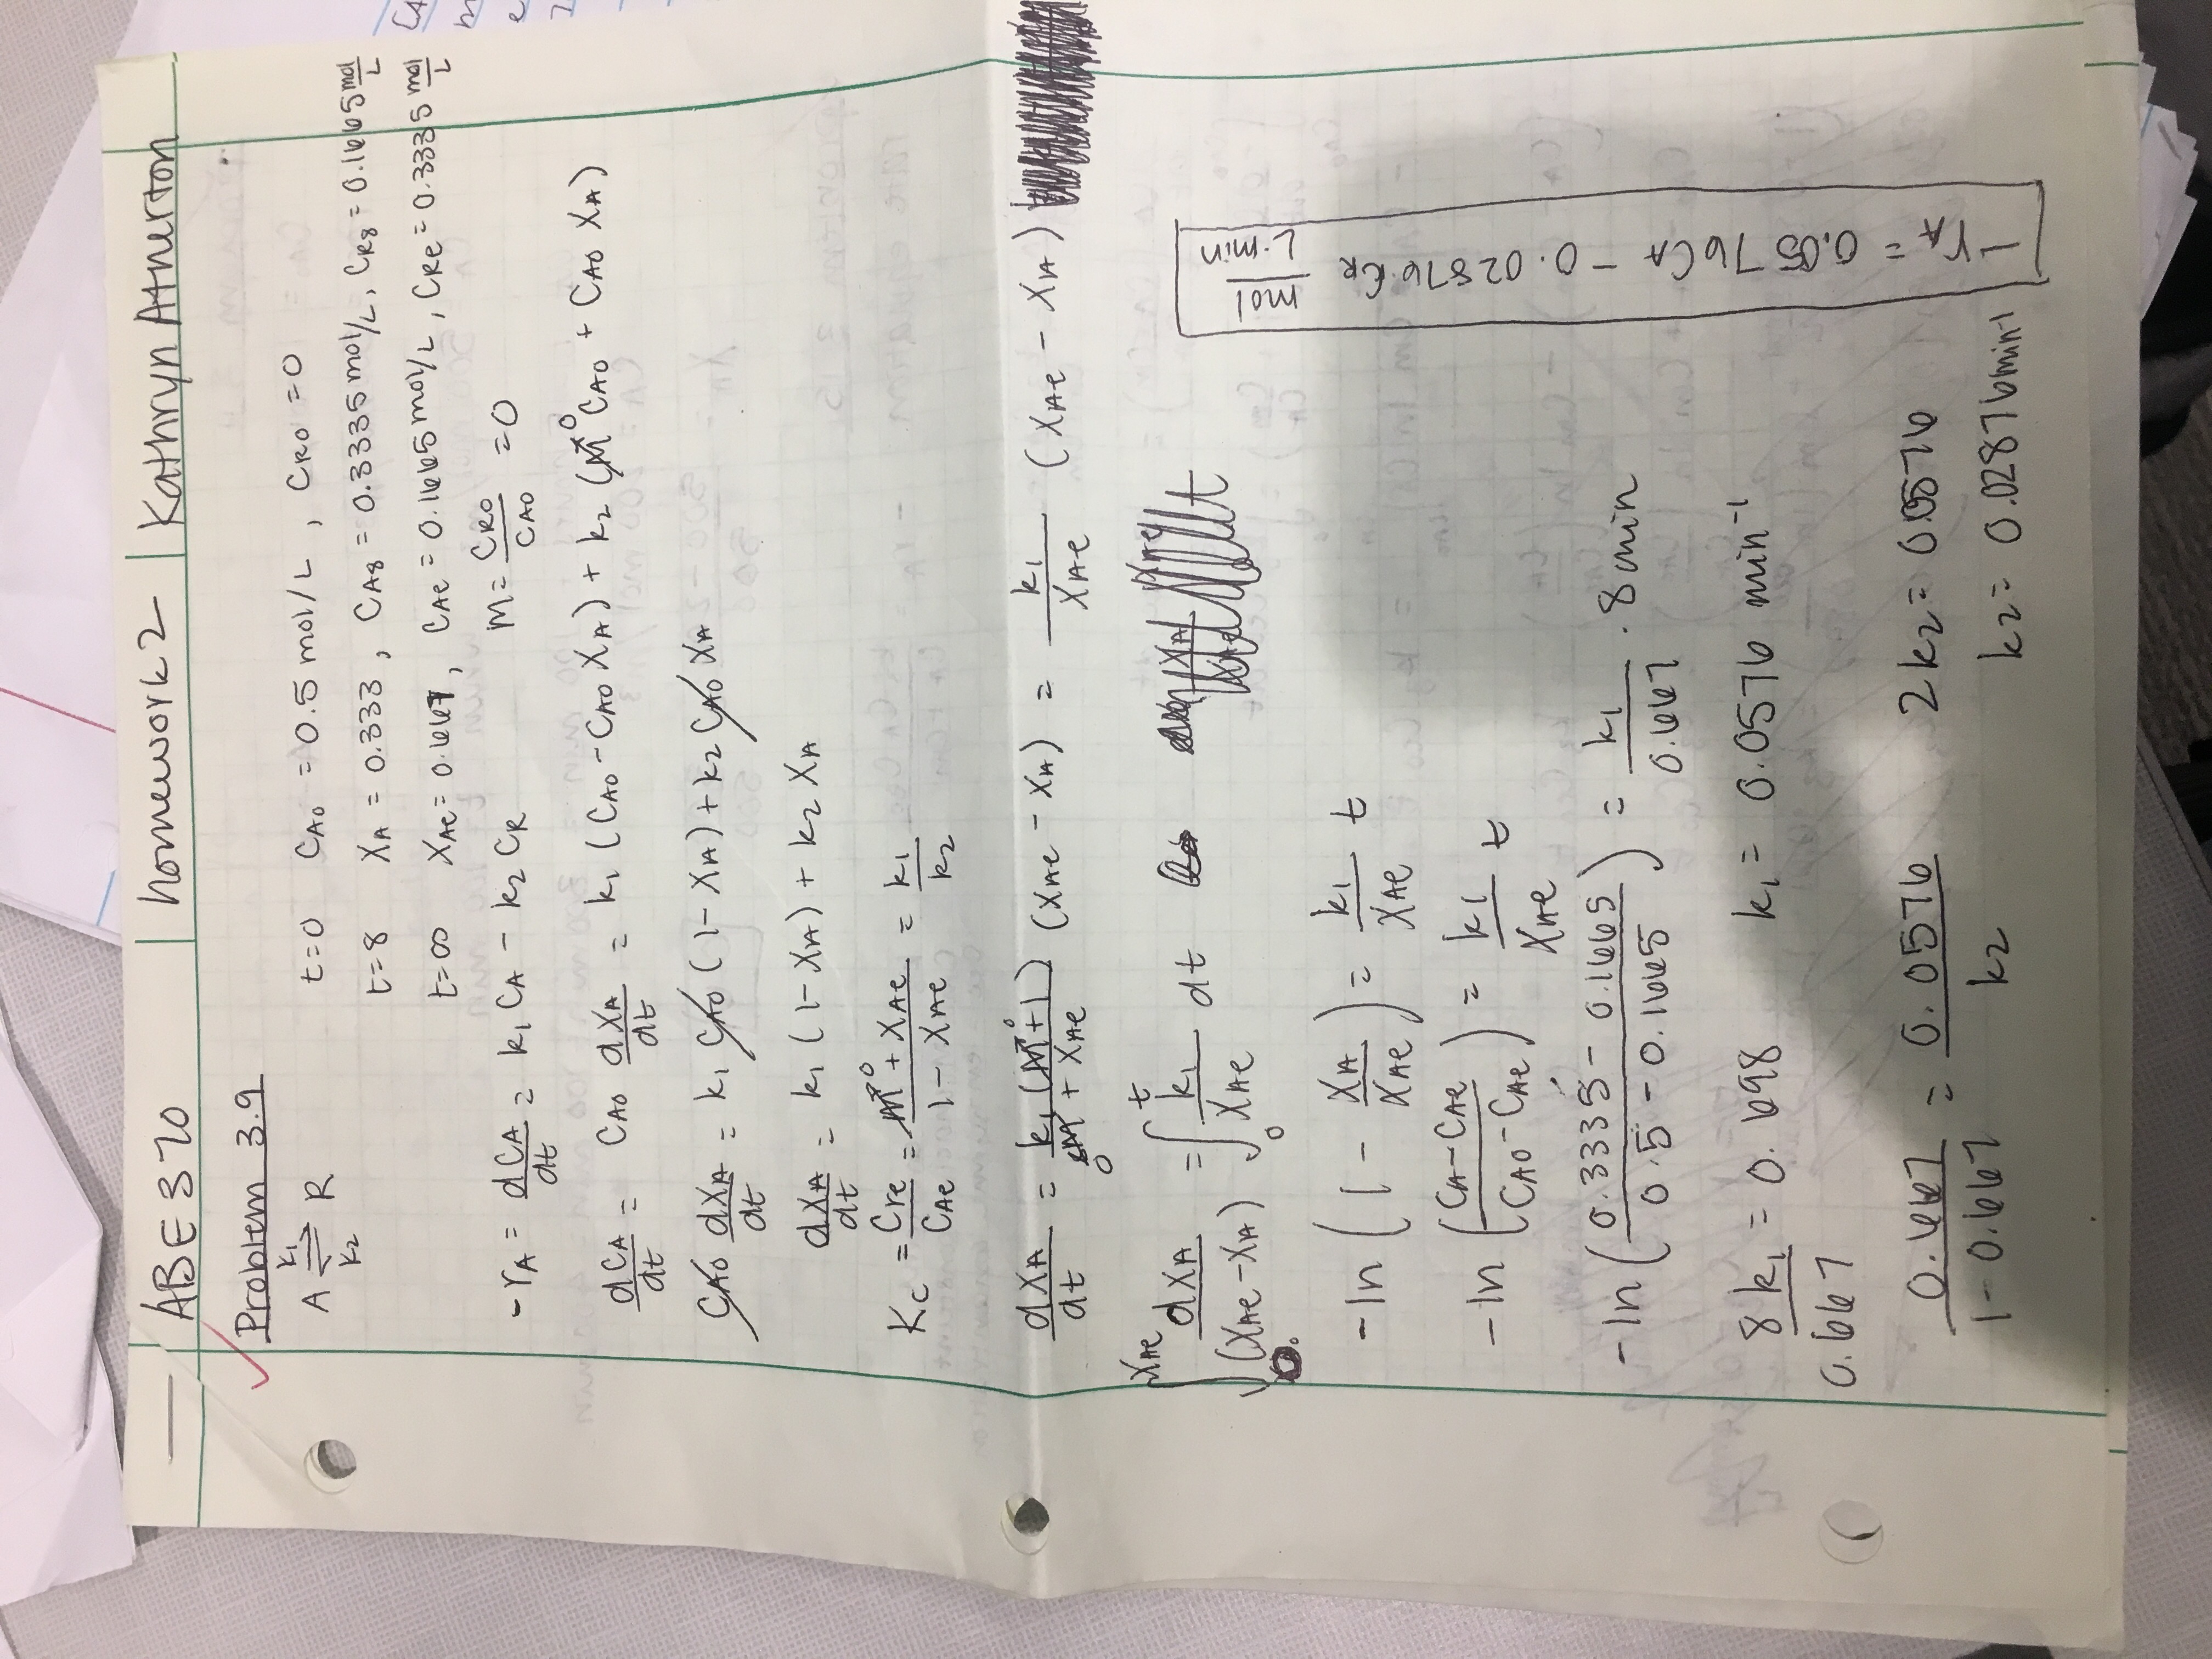 ABE 370 | homework 2 | Kathryn Atherton
Problem 3.9
A ⇌ R k₁ k₂
t=0 C_A0 = 0.5 mol/L , C_R0 = 0
t=8 X_A = 0.333 , C_A8 = 0.3335 mol/L , C_R8 = 0.1665 mol/L
t=∞ X_Ae = 0.667 , C_Ae = 0.1665 mol/L , C_Re = 0.3335 mol/L
-r_A = dC_A/dt = k₁ C_A - k₂ C_R M = C_R0/C_A0 = 0
dC_A/dt = C_A0 dX_A/dt = k₁ (C_A0 - C_A0 X_A) + k₂ (M⁰ C_A0 + C_A0 X_A)
C_A0 dX_A/dt = k₁ C_A0 (1 - X_A) + k₂ C_A0 X_A
dX_A/dt = k₁ (1 - X_A) + k₂ X_A
K_c = C_re/C_Ae = (M⁰ + X_Ae)/(1 - X_Ae) = k₁/k₂
dX_A/dt = k₁ (M⁰ + 1)/(M⁰ + X_Ae) (X_Ae - X_A) = k₁/X_Ae (X_Ae - X_A)
∫₀^X_Ae dX_A/(X_Ae - X_A) = ∫₀^t k₁/X_Ae dt
-ln (1 - X_A/X_Ae) = k₁/X_Ae t
-ln ((C_A - C_Ae)/(C_A0 - C_Ae)) = k₁/X_Ae t
-ln ((0.3335 - 0.1665)/(0.5 - 0.1665)) = k₁/0.667 · 8 min
8 k₁/0.667 = 0.698 k₁ = 0.0576 min⁻¹
0.667/(1 - 0.667) = 0.0576/k₂ 2k₂ = 0.0576
k₂ = 0.02876 min⁻¹
-r_A = 0.0576 C_A - 0.02876 C_R mol/L·min